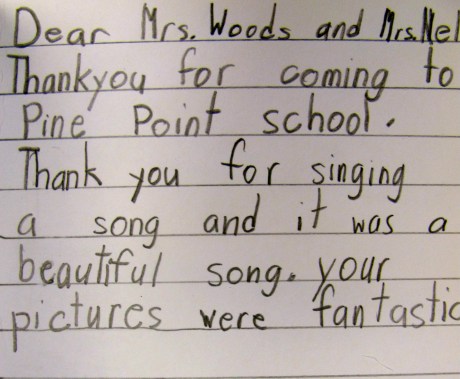 Dear Mrs. Woods and Mrs. Nel
Thankyou for coming to
Pine Point school.
Thank you for singing
a song and it was a
beautiful song. your
pictures were fantastic